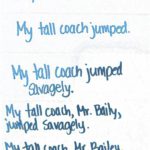 My tall coach jumped.
My tall coach jumped
savagely.
My tall coach, Mr. Baily,
jumped savagely.
My tall coach, Mr. Bailey